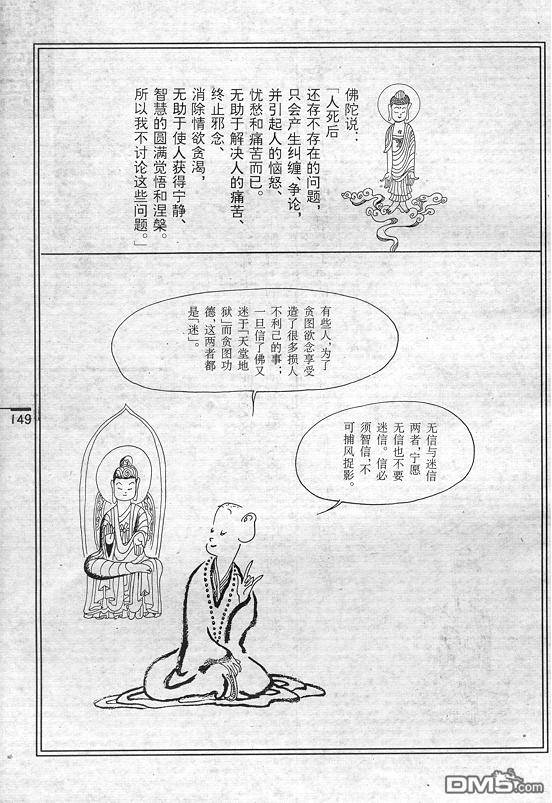 佛陀说：
「人死后
还存不存在的问题，
只会产生纠缠、争论，
并引起人的恼怒、
忧愁和痛苦而已。
无助于解决人的痛苦、
终止邪念、
消除情欲贪渴，
无助于使人获得宁静、
智慧的圆满觉悟和涅槃。
所以我不讨论这些问题。」
有些人，为了
贪图欲念享受
造了很多损人
不利己的事；
一旦信了佛又
迷于「天堂地
狱」而贪图功
德，这两者都
是「迷」。
无信与迷信
两者，宁愿
无信也不要
迷信。信必
须智信，不
可捕风捉影。
149
DM5.com